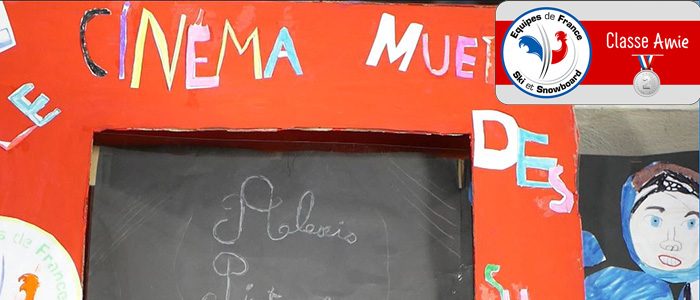 LE
CINÉMA MUET
DES
Equipes de France
Ski et Snowboard
Classe Amie
2
Alexis
de France